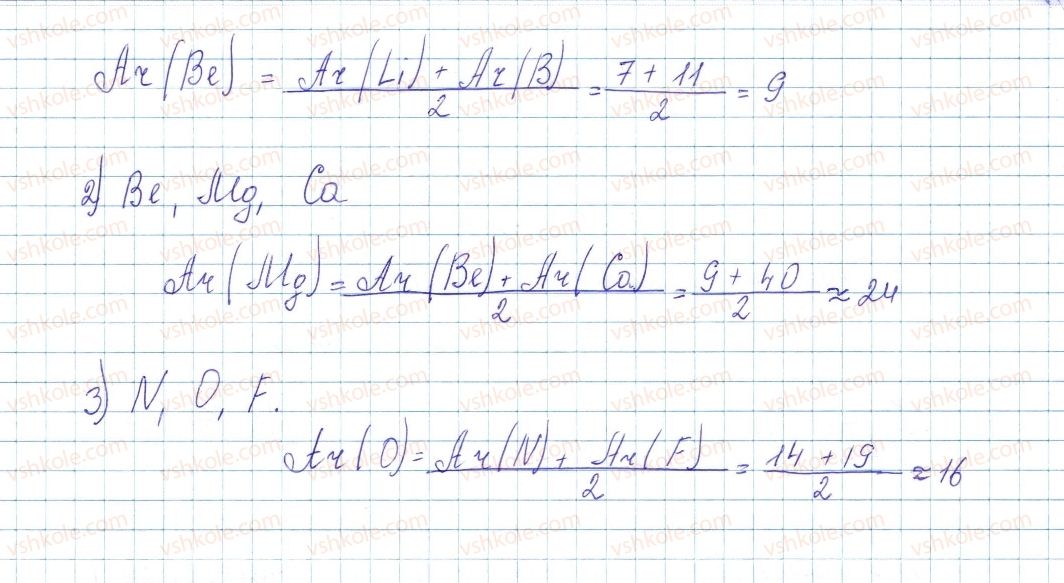 Ar(Be) = (Ar(Li) + Ar(B))/2 = (7 + 11)/2 = 9
2) Be, Mg, Ca
Ar(Mg) = (Ar(Be) + Ar(Ca))/2 = (9 + 40)/2 ≈ 24
3) N, O, F.
Ar(O) = (Ar(N) + Ar(F))/2 = (14 + 19)/2 ≈ 16
vshkole.com